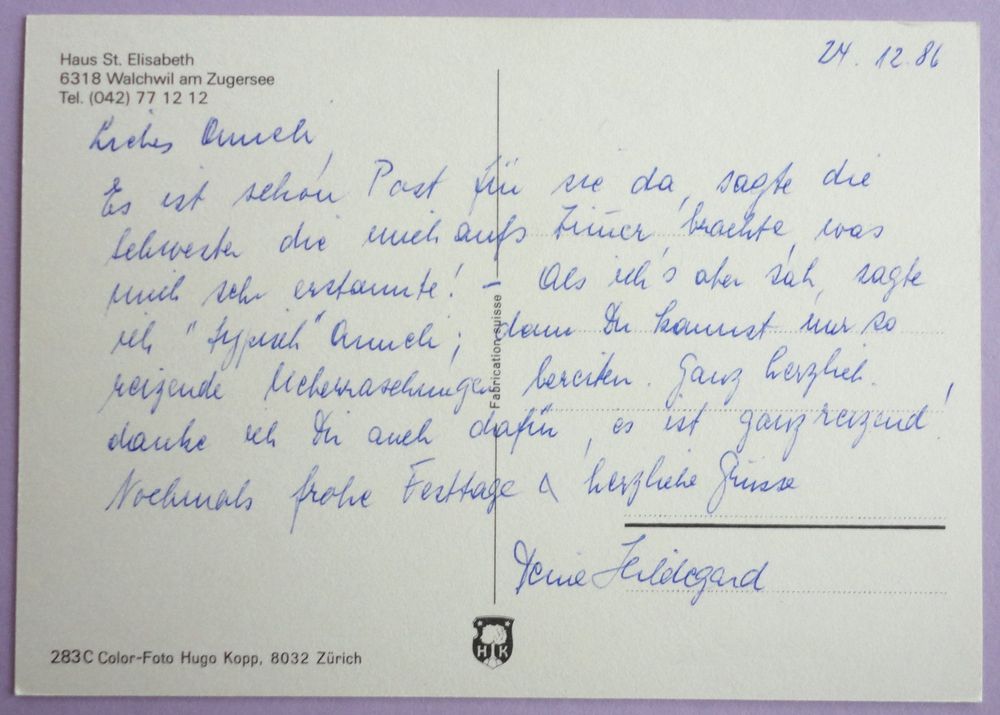 Haus St. Elisabeth
6318 Walchwil am Zugersee
Tel. (042) 77 12 12
24. 12. 86
Liebes Anneli,
Es ist schon Post für sie da, sagte die
Schwester die mich aufs Zimmer brachte, was
mich sehr erstaunte! – Als ich's aber sah, sagte
ich "typisch" Anneli; denn Du kannst nur so
reizende Ueberraschungen bereiten. Ganz herzlich
danke ich Dir auch dafür, es ist ganz reizend!
Nochmals frohe Festtage & herzliche Grüsse
Deine Hildegard
Fabrication suisse
283C Color-Foto Hugo Kopp, 8032 Zürich
H K